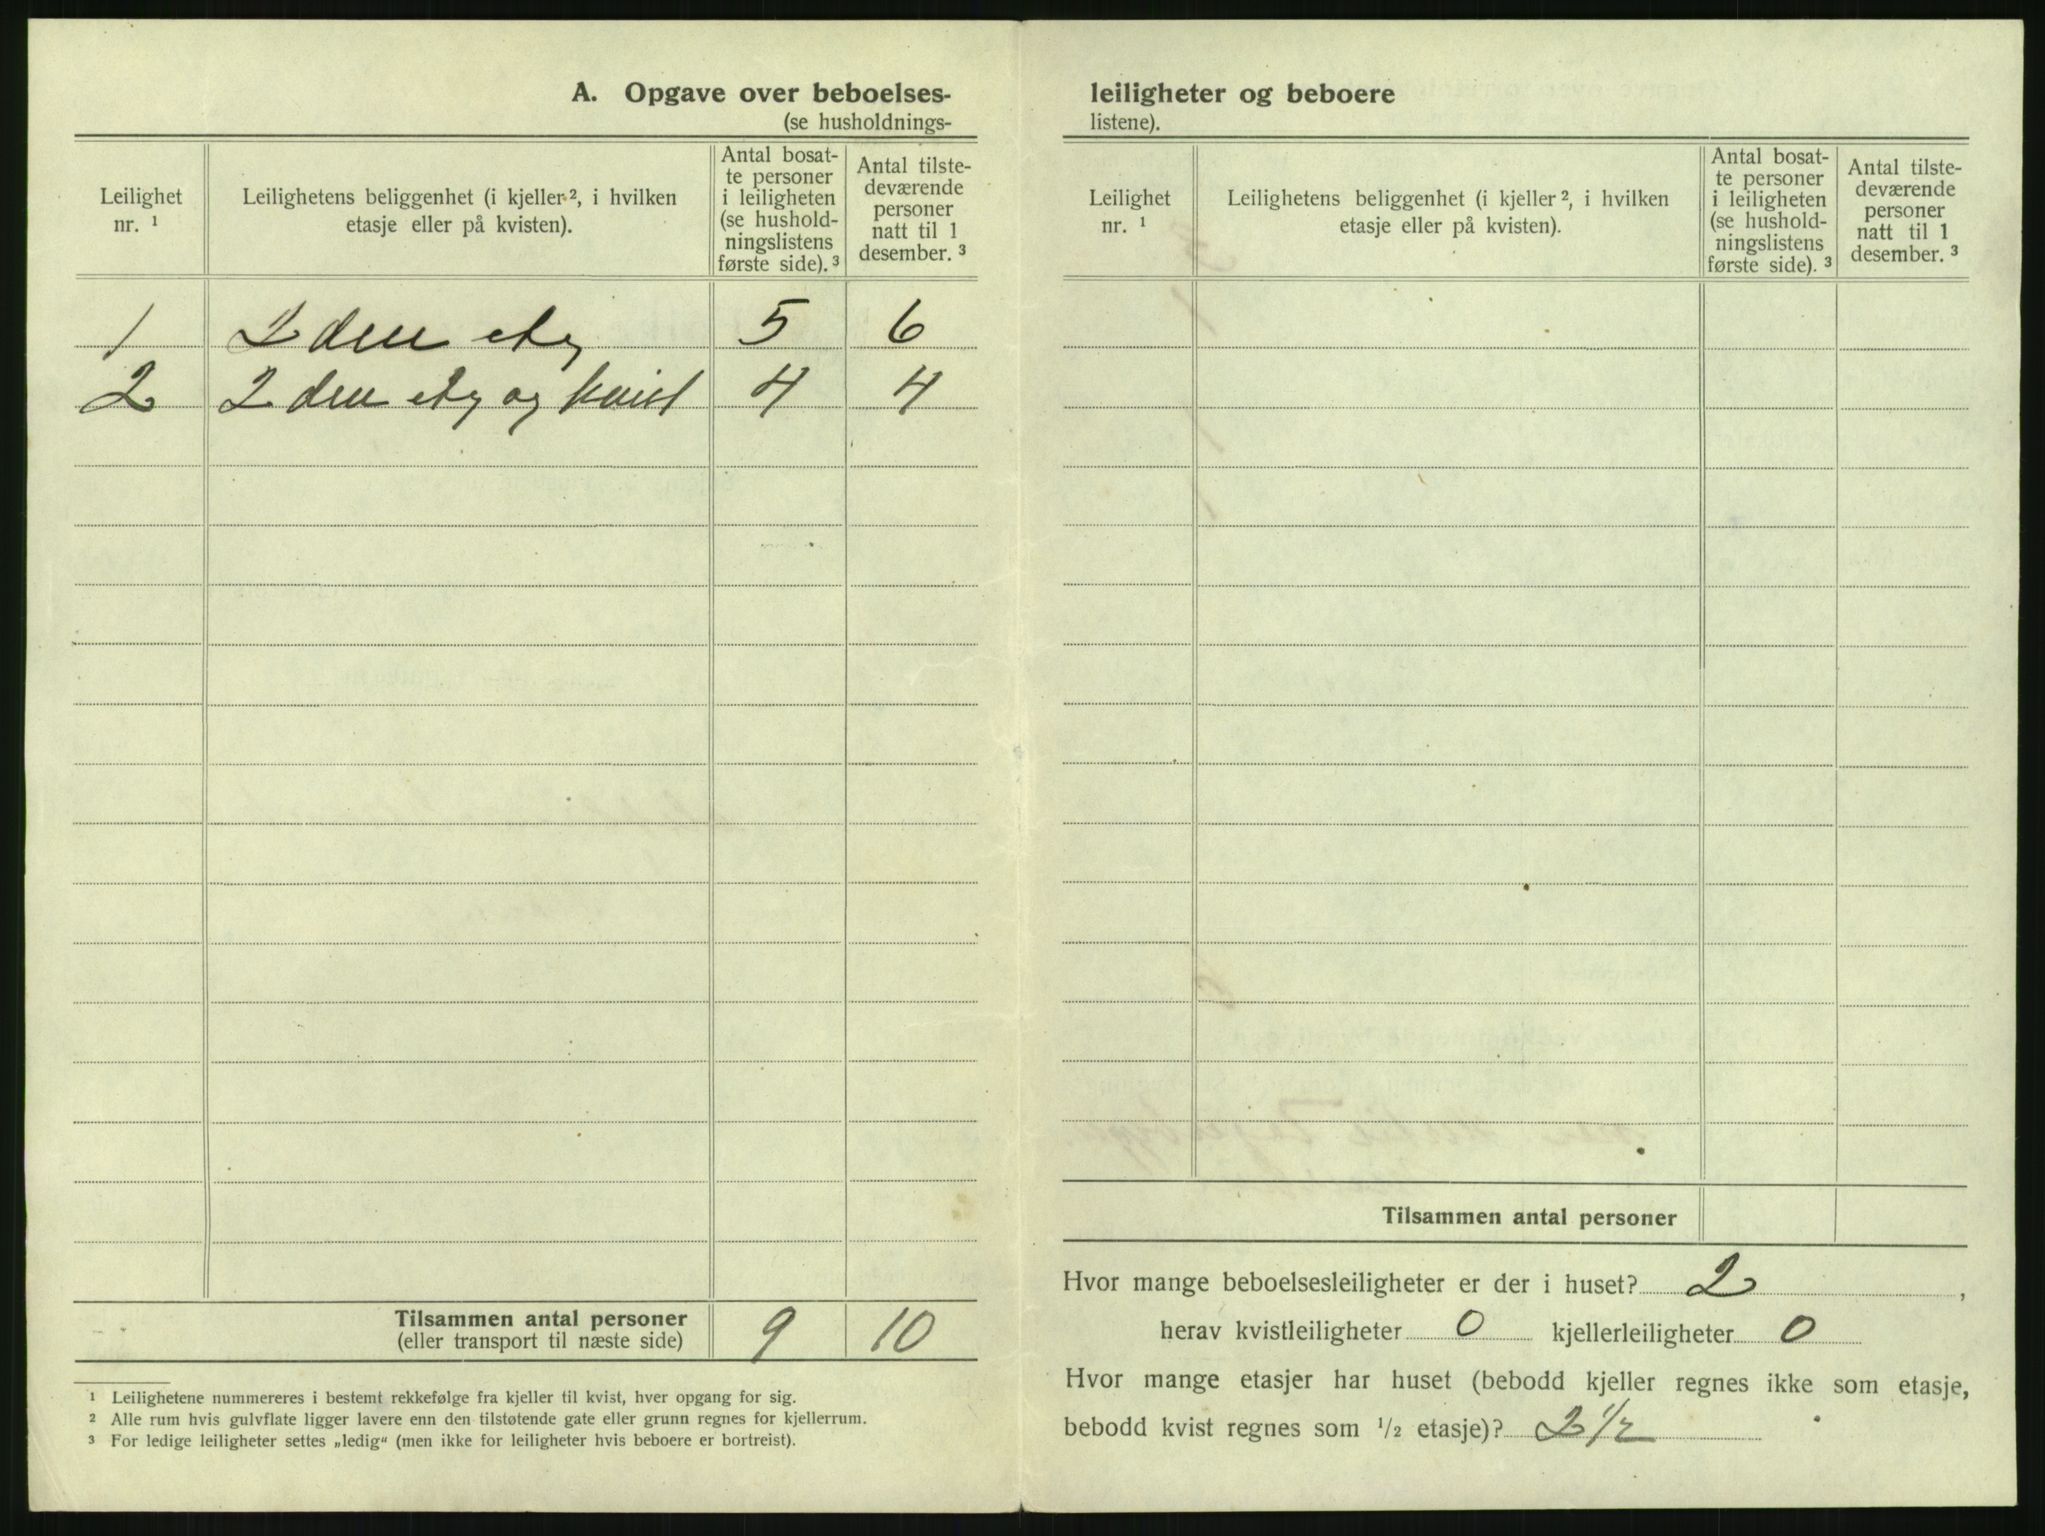 A. Opgave over beboelses-
(se husholdnings-
Leilighet nr. ¹
Leilighetens beliggenhet (i kjeller ², i hvilken
etasje eller på kvisten).
Antal bosat-
te personer
i leiligheten
(se hushold-
ningslistens
første side). ³
Antal tilste-
deværende
personer
natt til 1
desember. ³
1 2 den etg 5 6
2 2 den etg og kvist 4 4
Tilsammen antal personer 9 10
(eller transport til næste side)
¹ Leilighetene nummereres i bestemt rekkefølge fra kjeller til kvist, hver opgang for sig.
² Alle rum hvis gulvflate ligger lavere enn den tilstøtende gate eller grunn regnes for kjellerrum.
³ For ledige leiligheter settes „ledig“ (men ikke for leiligheter hvis beboere er bortreist).
leiligheter og beboere
listene).
Leilighet
nr. ¹
Leilighetens beliggenhet (i kjeller ², i hvilken
etasje eller på kvisten).
Antal bosat-
te personer
i leiligheten
(se hushold-
ningslistens
første side). ³
Antal tilste-
deværende
personer
natt til 1
desember. ³
Tilsammen antal personer
Hvor mange beboelsesleiligheter er der i huset? 2,
herav kvistleiligheter 0 kjellerleiligheter 0
Hvor mange etasjer har huset (bebodd kjeller regnes ikke som etasje,
bebodd kvist regnes som ½ etasje)? 2 ½